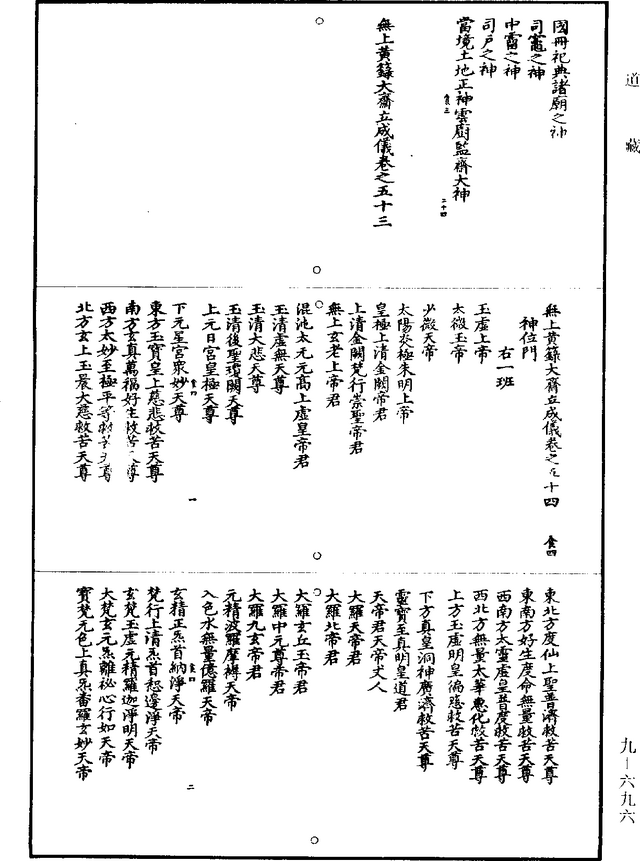 道藏
國冊祀典諸廟之神
司竈之神
中霤之神
司戶之神
當境土地正神雲廚監齋大神
食三
二十四
無上黃籙大齋立成儀卷之五十三
無上黃籙大齋立成儀卷之五十四
食四
神位門
右一班
玉虛上帝
太微玉帝
少微天帝
太陽炎極朱明上帝
皇極上清金闕帝君
上清金闕梵行崇聖帝君
無上玄老上帝君
混沌太元元高上虛皇帝君
玉清虛無天尊
玉清大悲天尊
玉清後聖瓊闕天尊
上元日宮皇極天尊
下元星宮眾妙天尊
食四
一
東方玉寶皇上慈悲救苦天尊
南方玄真萬福好生救苦天尊
西方太妙至極平等救苦天尊
北方玄上玉晨大慈救苦天尊
東北方度仙上聖普濟救苦天尊
東南方好生度命無量救苦天尊
西南方太靈虛皇普度救苦天尊
西北方無量太華惠化救苦天尊
上方玉虛明皇徧應救苦天尊
下方真皇洞神廣濟救苦天尊
靈寶至真明皇道君
天帝君天帝丈人
大羅天帝君
大羅北帝君
大羅玄丘玉帝君
大羅中元尊帝君
大羅九玄帝君
元精波羅摩縛天帝
入色水無量億羅天帝
食四
二
玄精正炁首納淨天帝
梵行上清炁首恕邊淨天帝
玄梵玉虛元精羅迦淨明天帝
大梵玄元炁離祕心行如天帝
寶梵元色上真炁番羅玄妙天帝
九－六九六